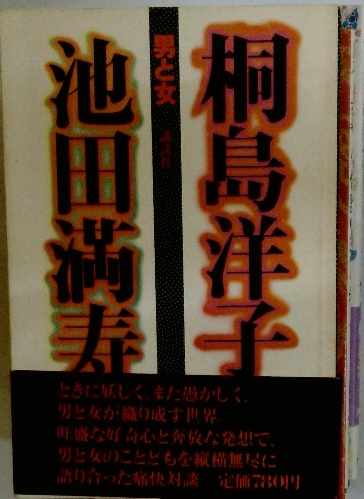 桐島洋子
男と女
講談社
池田満寿
ときに妖しく、また愚かしく、
男と女が織り成す世界。
旺盛な好奇心と奔放な発想で、
男と女のことどもを縦横無尽に
語り合った痛快対談 定価780円